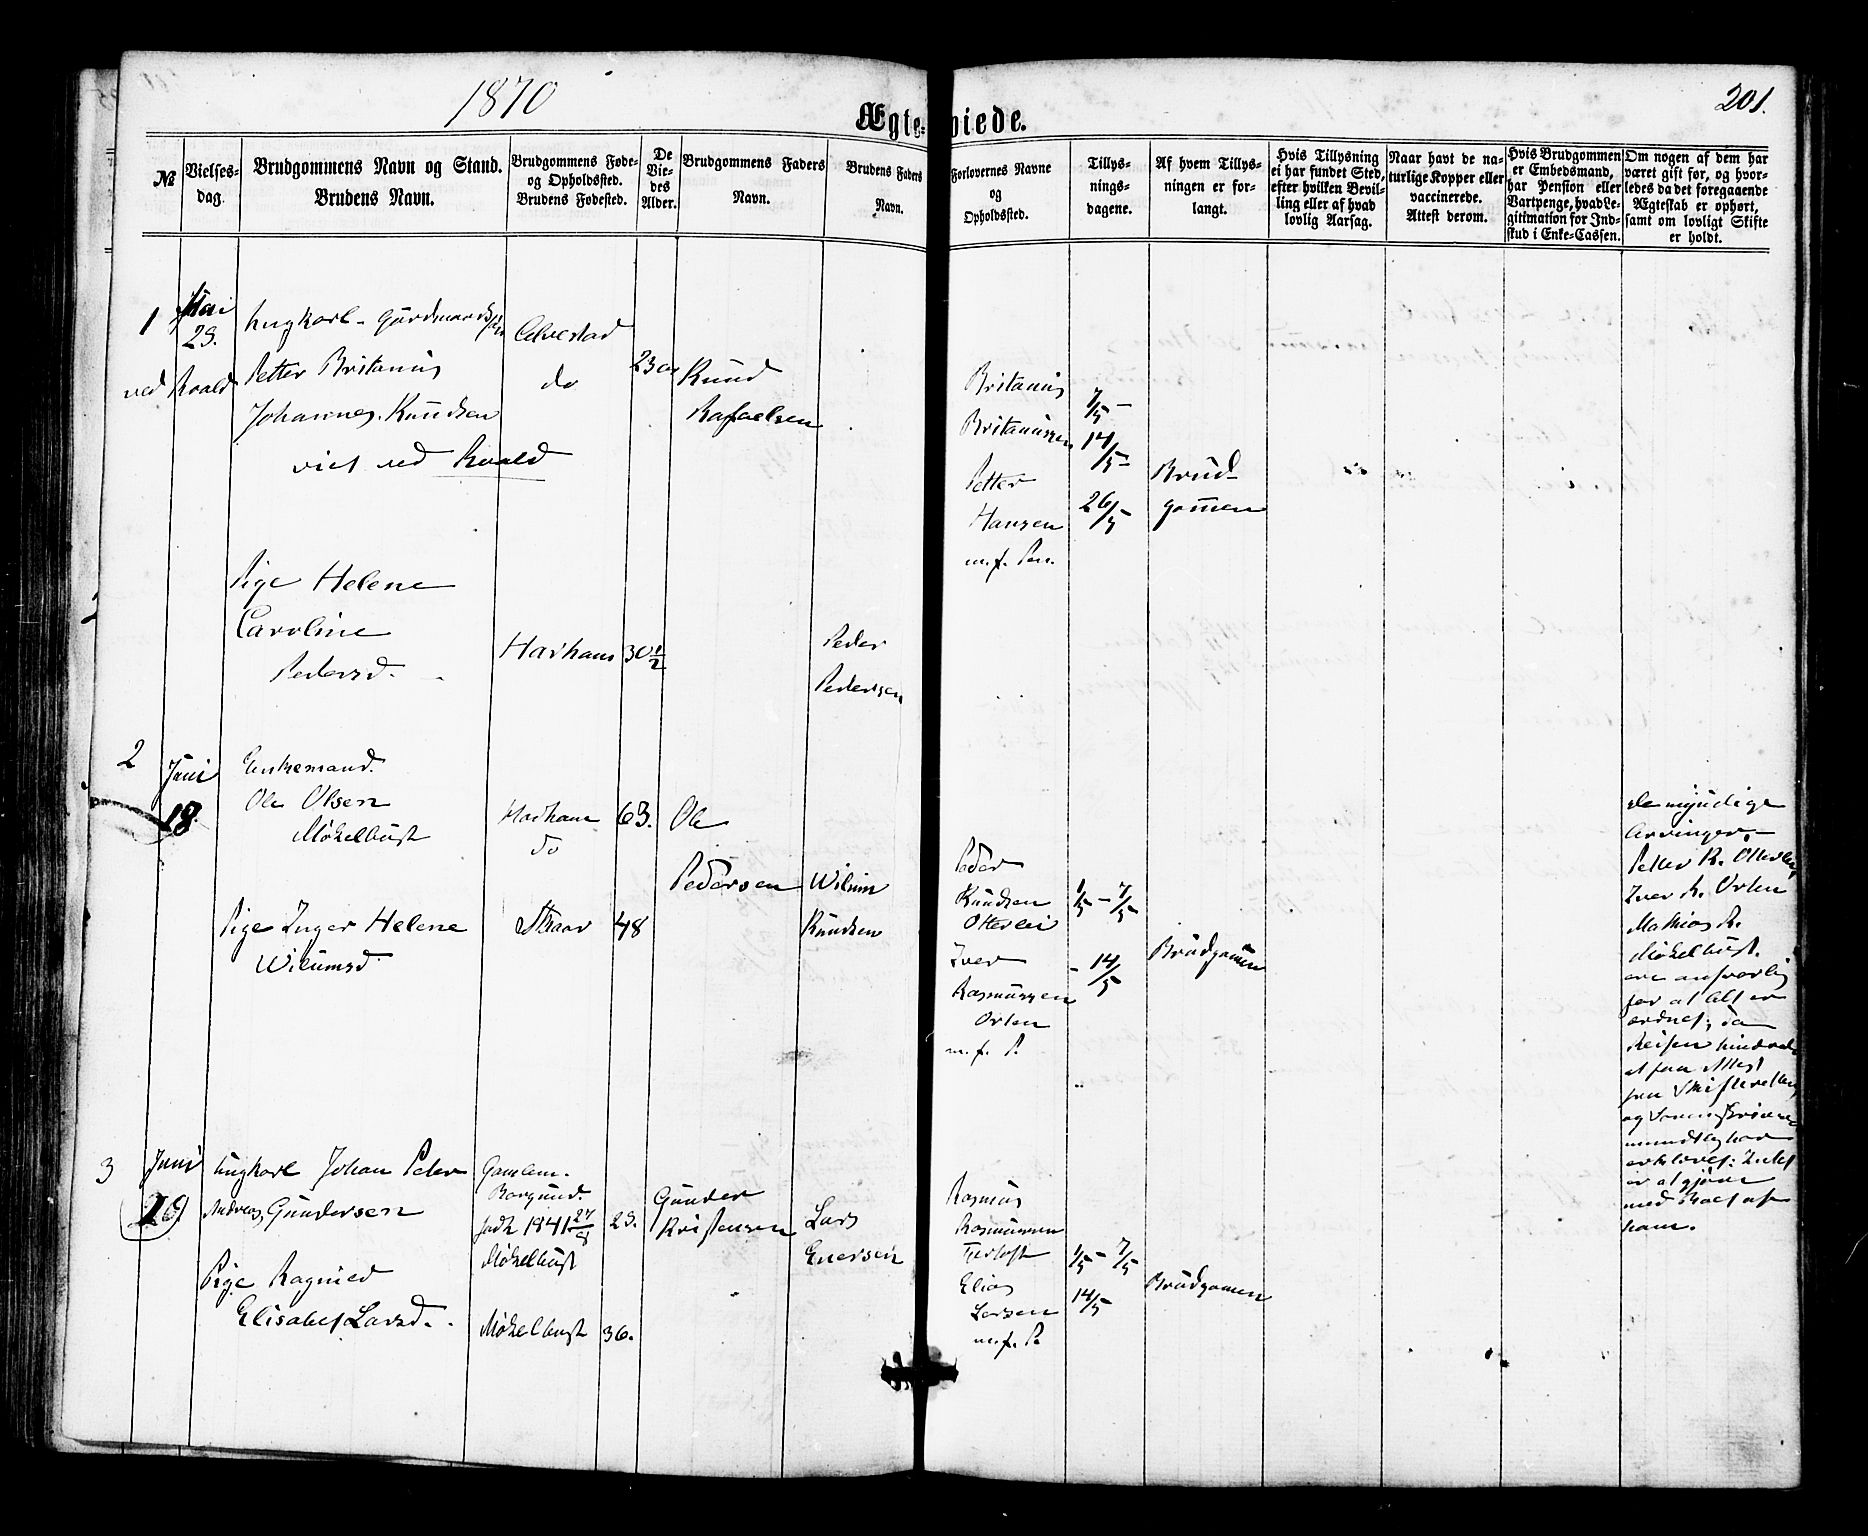 1870
201.
Ægte-viede.
№
Vielses-
dag.
Brudgommens Navn og Stand.
Brudens Navn.
Brudgommens Føde-
og Opholdssted.
Brudens Fødested.
De
Vie-
des
Alder.
Brudgommens Faders
Navn.
Brudens Faders
Navn.
Forlovernes Navne
og
Opholdssted.
Tillys-
nings-
dagene.
Af hvem Tillys-
ningen er for-
langt.
Hvis Tillysning
ei har fundet Sted,
efter hvilken Bevil-
ling eller af hvad
lovlig Aarsag.
Naar havt de na-
turlige Kopper eller
vaccinerede.
Attest derom.
Hvis Brudgommen
er Embedsmand,
har Pension eller
Vartpenge, hvad Le-
gitimation for Ind-
skud i Enke-Cassen.
Om nogen af dem har
været gift før, og hvor-
ledes da det foregaaende
Ægteskab er ophørt,
samt om lovligt Skifte
er holdt.
1
Mai
29.
ved Roald
Ungkarl - Gaardmands
Petter Britanus
Johannes Knudsen
viet ved Roald
do
23
Knud
Rafaelsen
Britanus
Britanussen
Petter
Hansen
m. f.
7/5 -
14/5 -
26/5
Brud-
gommen
Pige Helene
Caroline
Pedersd.
Harhaus
30 1/2
Peder
Pedersen
2
Juni
18
Enkemand.
Ole Olsen
Møkelbust
Harhaus
do
63.
Ole
Pedersen
Pige Inger Helene
Wilumsd
48
Wilum
Knudsen
Peder
Knudsen
Otterlei
Iver
Rasmussen
Orten
m. f. P.
1/5 - 7/5
- 14/5
Brudgomen
de myndige
Arvinger
Petter K. Otterlei,
Iver R. Orten
Mathias R.
Møkelbust.
ere ansvarlig
for at Alt er
ordnet; da
Reisen hindrede
at faa Attest
fra Skifteretten,
og
mundtlig har
erklæret: Intet
er at gjøre
med Boet af
ham.
3
Juni
19
Ungkarl Johan Peter
Andreas Gundersen
Gamlem.
Borgund.
født 1841 27/8
Møkelbust
29.
Gunder
Kristensen
Pige Ragnied
Elisabet Larsd.
Møkelbust
36.
Lars
Enersen
Rasmus
Rasmussen
Elias
Larsen
m. f. P.
1/5 - 7/5
14/5
Brudgomen